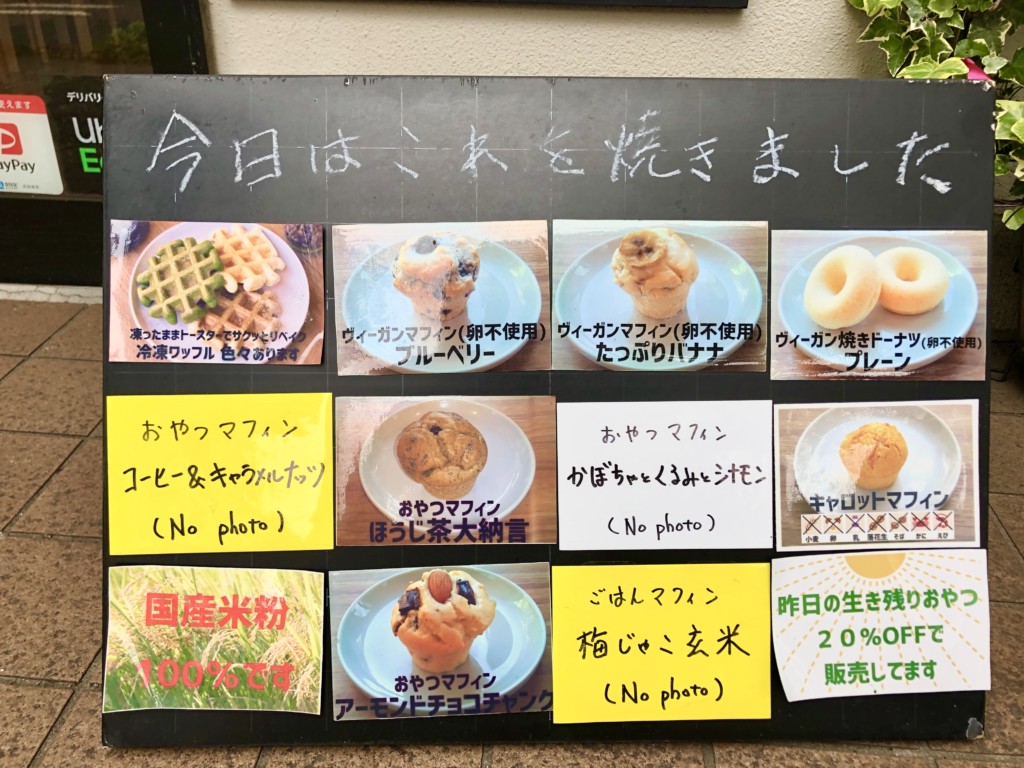 今日はこれを焼きました
使えます
PayPay
デリバリ
凍ったままトースターでサクッとリベイク
冷凍ワッフル 色々あります
ヴィーガンマフィン(卵不使用)
ブルーベリー
ヴィーガンマフィン(卵不使用)
たっぷりバナナ
ヴィーガン焼きドーナツ(卵不使用)
プレーン
おやつマフィン
コーヒー&キャラメルナッツ
(No photo)
おやつマフィン
ほうじ茶大納言
おやつマフィン
かぼちゃとくるみとシナモン
(No photo)
キャロットマフィン
小麦 卵 乳 落花生 そば かに えび
国産米粉
100%です
おやつマフィン
アーモンドチョコチャンク
ごはんマフィン
梅じゃこ玄米
(No photo)
昨日の生き残りおやつ
20%OFFで
販売してます